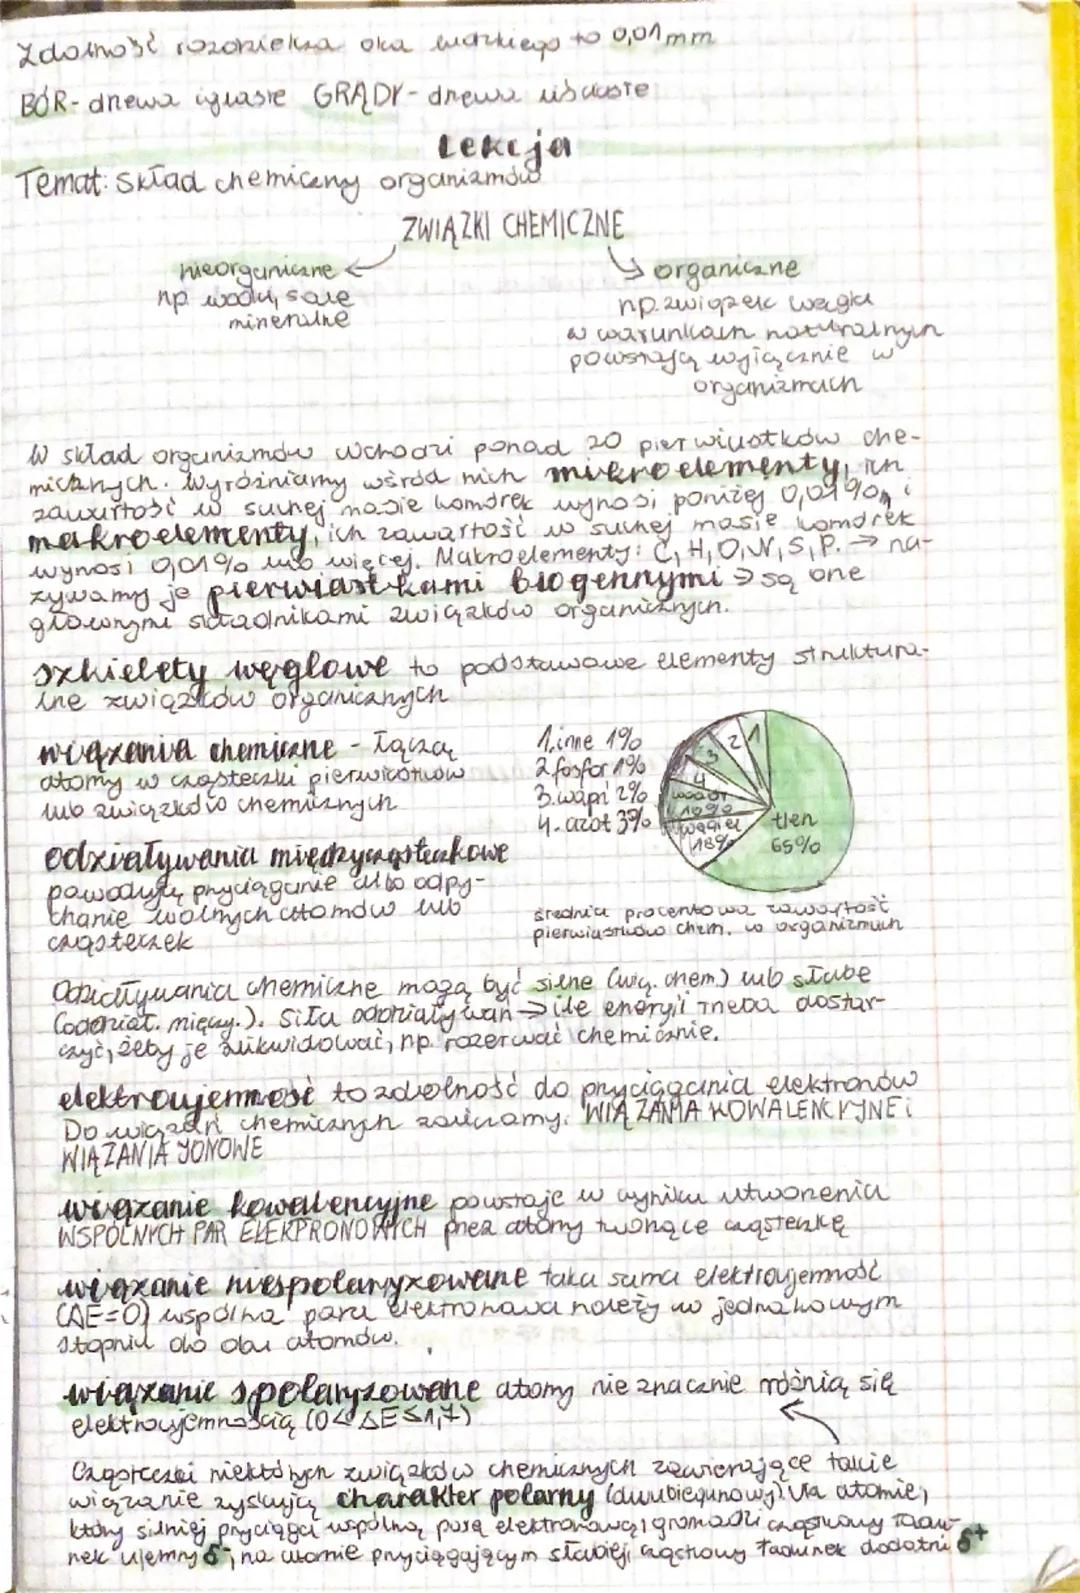 Zdolność rozdzielcza oka ludzkiego to 0,01mm
BÓR- drzewa iglaste GRĄDY- drzewa liściaste
Lekcja
Temat: Skład chemiczny organizmów
ZWIĄZKI CHEMICZNE
nieorganiczne
np. woda, sole
mineralne
organiczne
np. związek węgla
w warunkach naturalnych
powstają wyłącznie w
organizmach
W skład organizmów wchodzi ponad 20 pierwiastków che-
micznych. Wyróżniamy wśród nich mikroelementy, ich
zawartość w suchej masie komórek wynosi poniżej 0,01%, i
makroelementy, ich zawartość w suchej masie komórek
wynosi 0,01% lub więcej. Makroelementy: C, H, O, N, S, P. → na-
zywamy je pierwiastkami biogennymi → są one
głównymi składnikami związków organicznych.
szkielety węglowe to podstawowe elementy struktura-
lne związków organicznych
wiązania chemiczne - łączą
atomy w cząsteczki pierwiastków
lub związków chemicznych
1. inne 1%
2. fosfor 1%
3. wapń 2%
4. azot 3%
1
2
3
4
wodór
10%
węgiel
18%
tlen
65%
odziaływania międzycząsteczkowe
powodują przyciąganie albo odpy-
chanie wolnych atomów lub
cząsteczek
średnia procentowa zawartość
pierwiastków chem. w organizmach
Odziaływania chemiczne mogą być silne (wią. chem.) lub słabe
(oddział. między.). Siła oddziaływań → ile energii trzeba dostar-
czyć, żeby je zlikwidować, np. rozerwać chemicznie.
elektroujemność to zdolność do przyciągania elektronów
Do wiązań chemicznych zaliczamy: WIĄZANIA KOWALENCYJNE i
WIĄZANIA JONOWE
wiązanie kowalencyjne powstaje w wyniku utworzenia
WSPÓLNYCH PAR ELEKPRONOWYCH przez atomy tworzące cząsteczkę
wiązanie niespolaryzowane taka sama elektroujemność
(ΔE=0) wspólna para elektronowa należy w jednakowym
stopniu do obu atomów.
wiązanie spolaryzowane atomy nieznacznie różnią się
elektroujemnością (0< ΔE ≤1,7)
Cząsteczki niektórych związków chemicznych zawierające takie
wiązanie zyskują charakter polarny (dwubiegunowy). Na atomie,
który silniej przyciąga wspólną parę elektronową, gromadzi cząstkowy ładu-
nek ujemny δ⁻, na atomie przyciągającym słabiej, cząstkowy ładunek dodatni δ⁺